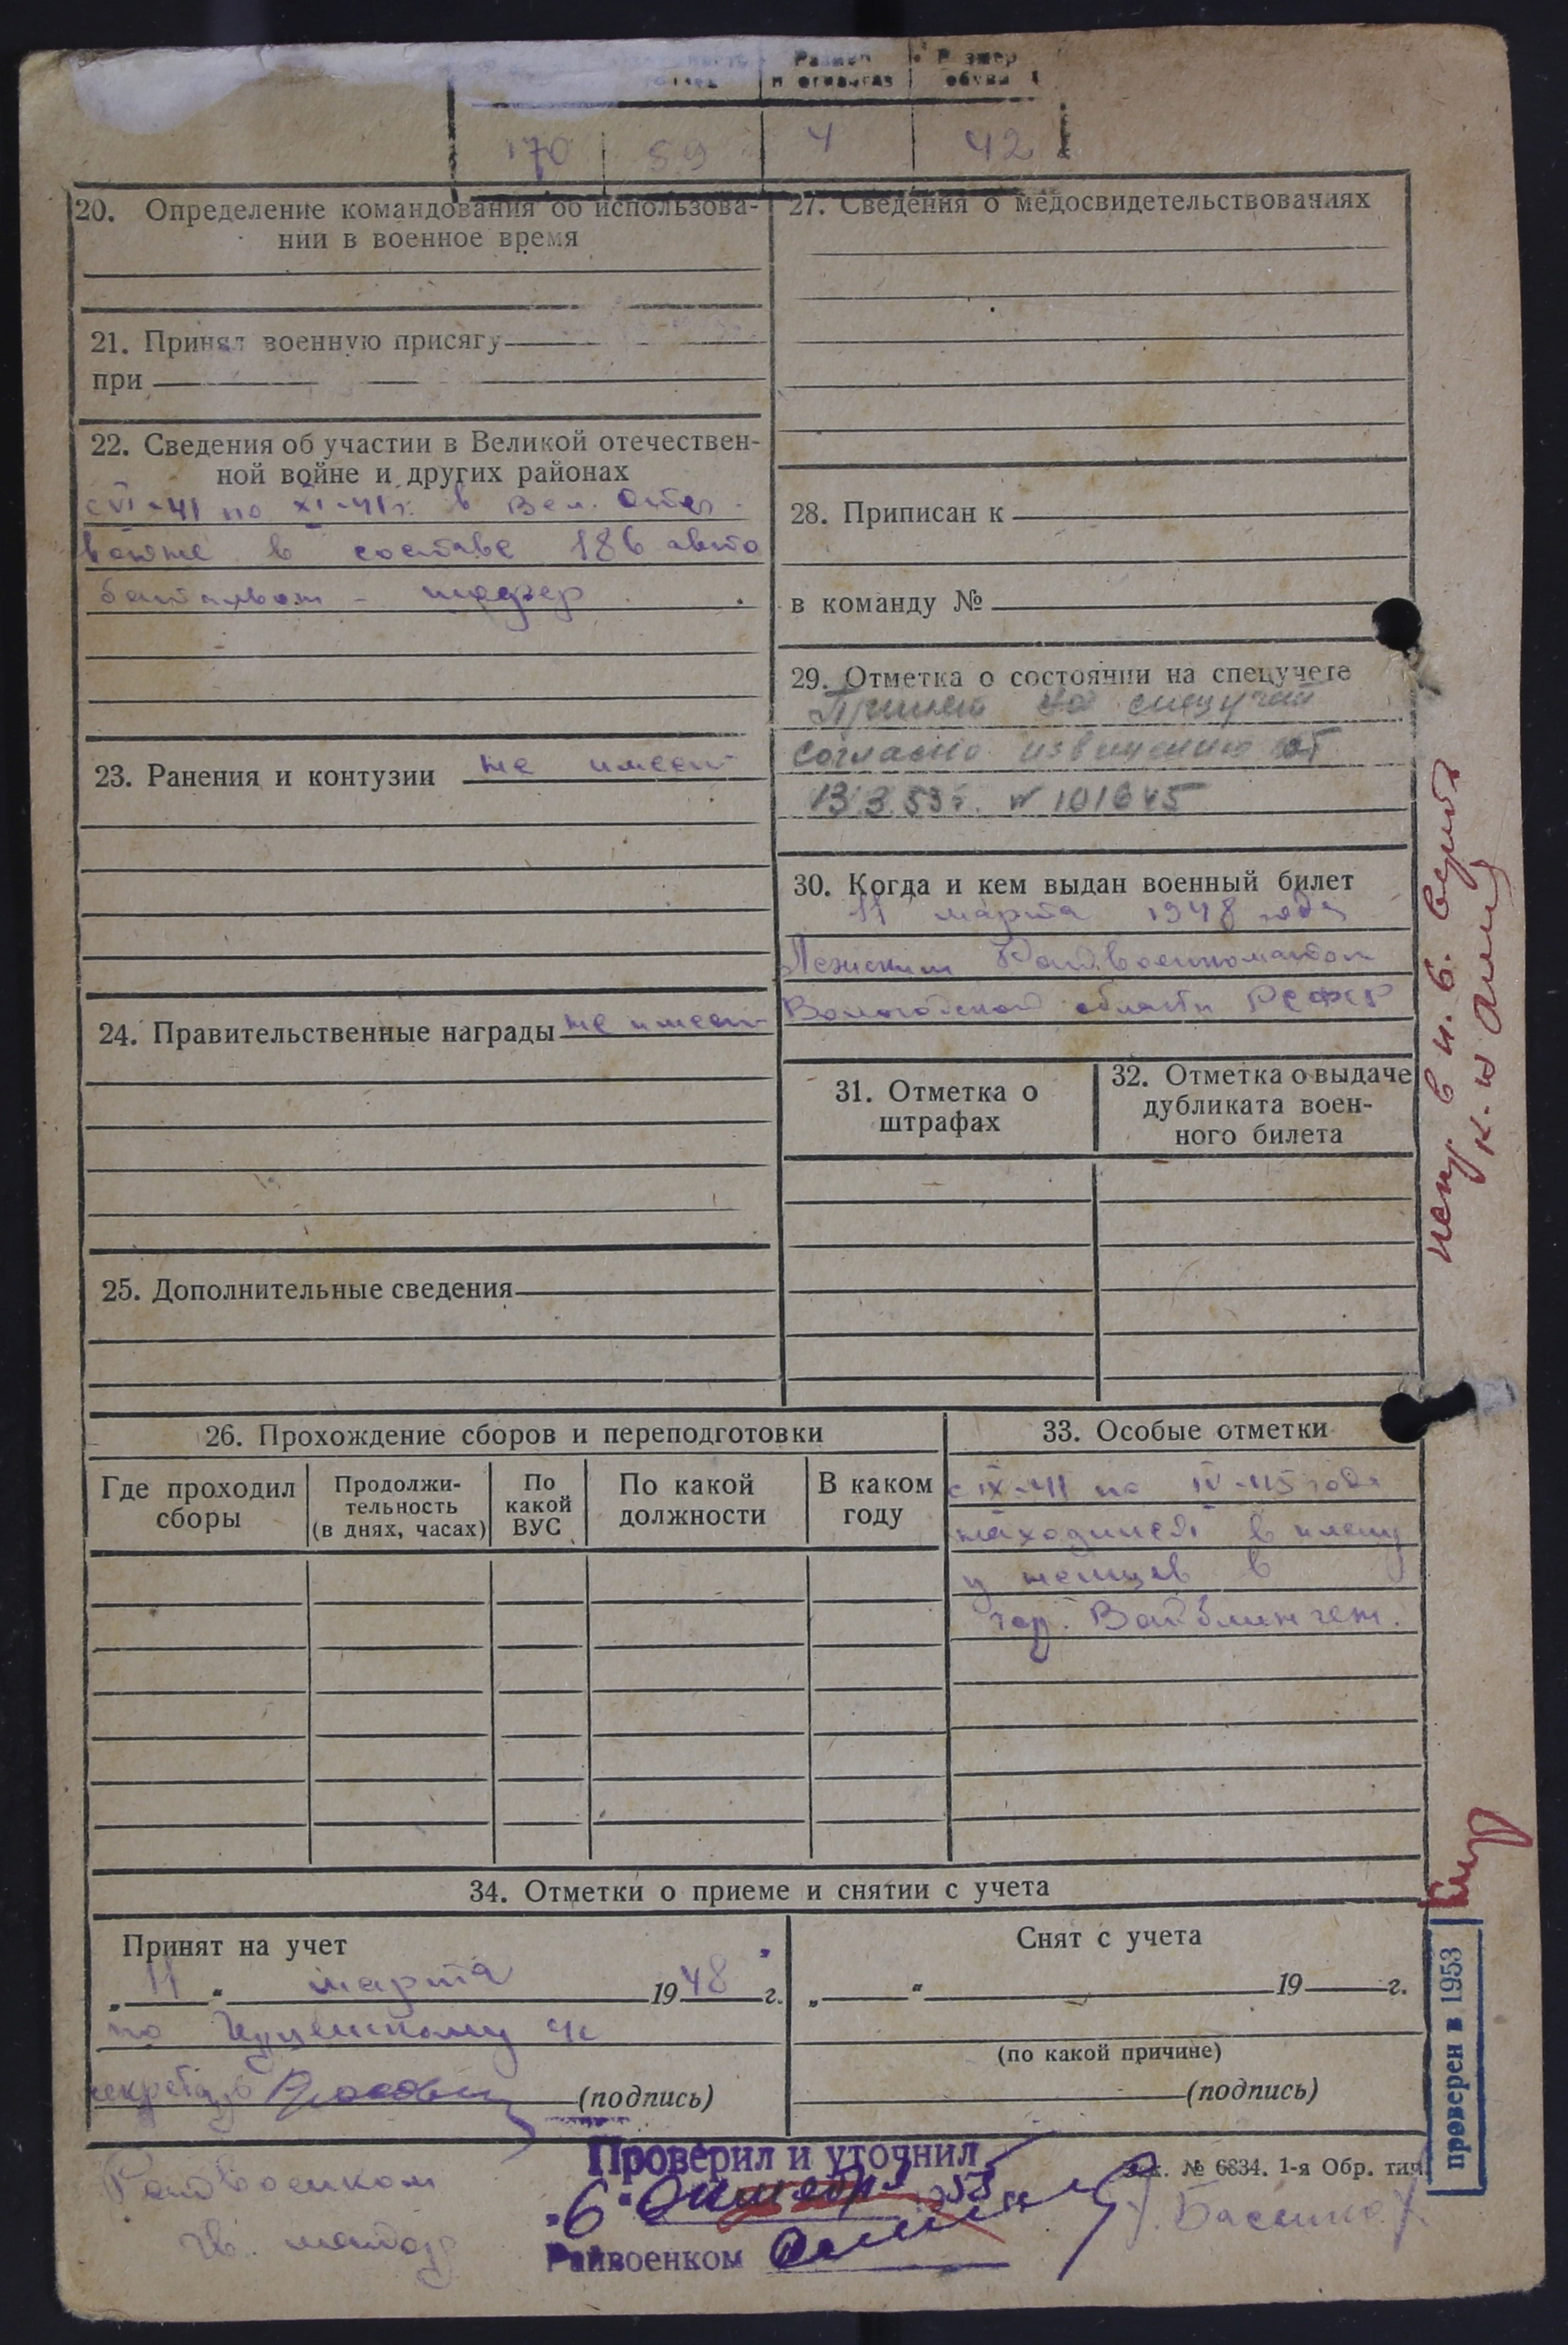 Размер
обуви
170 59 4 42
20. Определение командования об использова-
нии в военное время
21. Принял военную присягу
при
22. Сведения об участии в Великой отечествен-
ной войне и других районах
с VI-41 по XI-41 г. в Вел. Отеч.
войне в составе 186 авто
батальон - шофер
23. Ранения и контузии не имеет
24. Правительственные награды не имеет
25. Дополнительные сведения
27. Сведения о медосвидетельствованиях
28. Приписан к
в команду №
29. Отметка о состоянии на спецучете
Принят на спецучет
согласно извещению от
13.3.53 г. № 101645
30. Когда и кем выдан военный билет
11 марта 1948 года
Райвоенкоматом
Вологодской области РСФСР
31. Отметка о
штрафах
32. Отметка о выдаче
дубликата воен-
ного билета
26. Прохождение сборов и переподготовки
Где проходил
сборы
Продолжи-
тельность
(в днях, часах)
По
какой
ВУС
По какой
должности
В каком
году
33. Особые отметки
с IX-41 по IV-45 года
находился в плену
у немцев в
гор. Вайблинген.
34. Отметки о приеме и снятии с учета
Принят на учет
„ 11 “ марта 1948 г.
по
секретарь (подпись)
Снят с учета
„ “ 19 г.
(по какой причине)
(подпись)
Зак. № 6834. 1-я Обр. тип.
Проверил и уточнил
"6" 1953
Райвоенком
Райвоенком
гв. майор
проверен в 1953